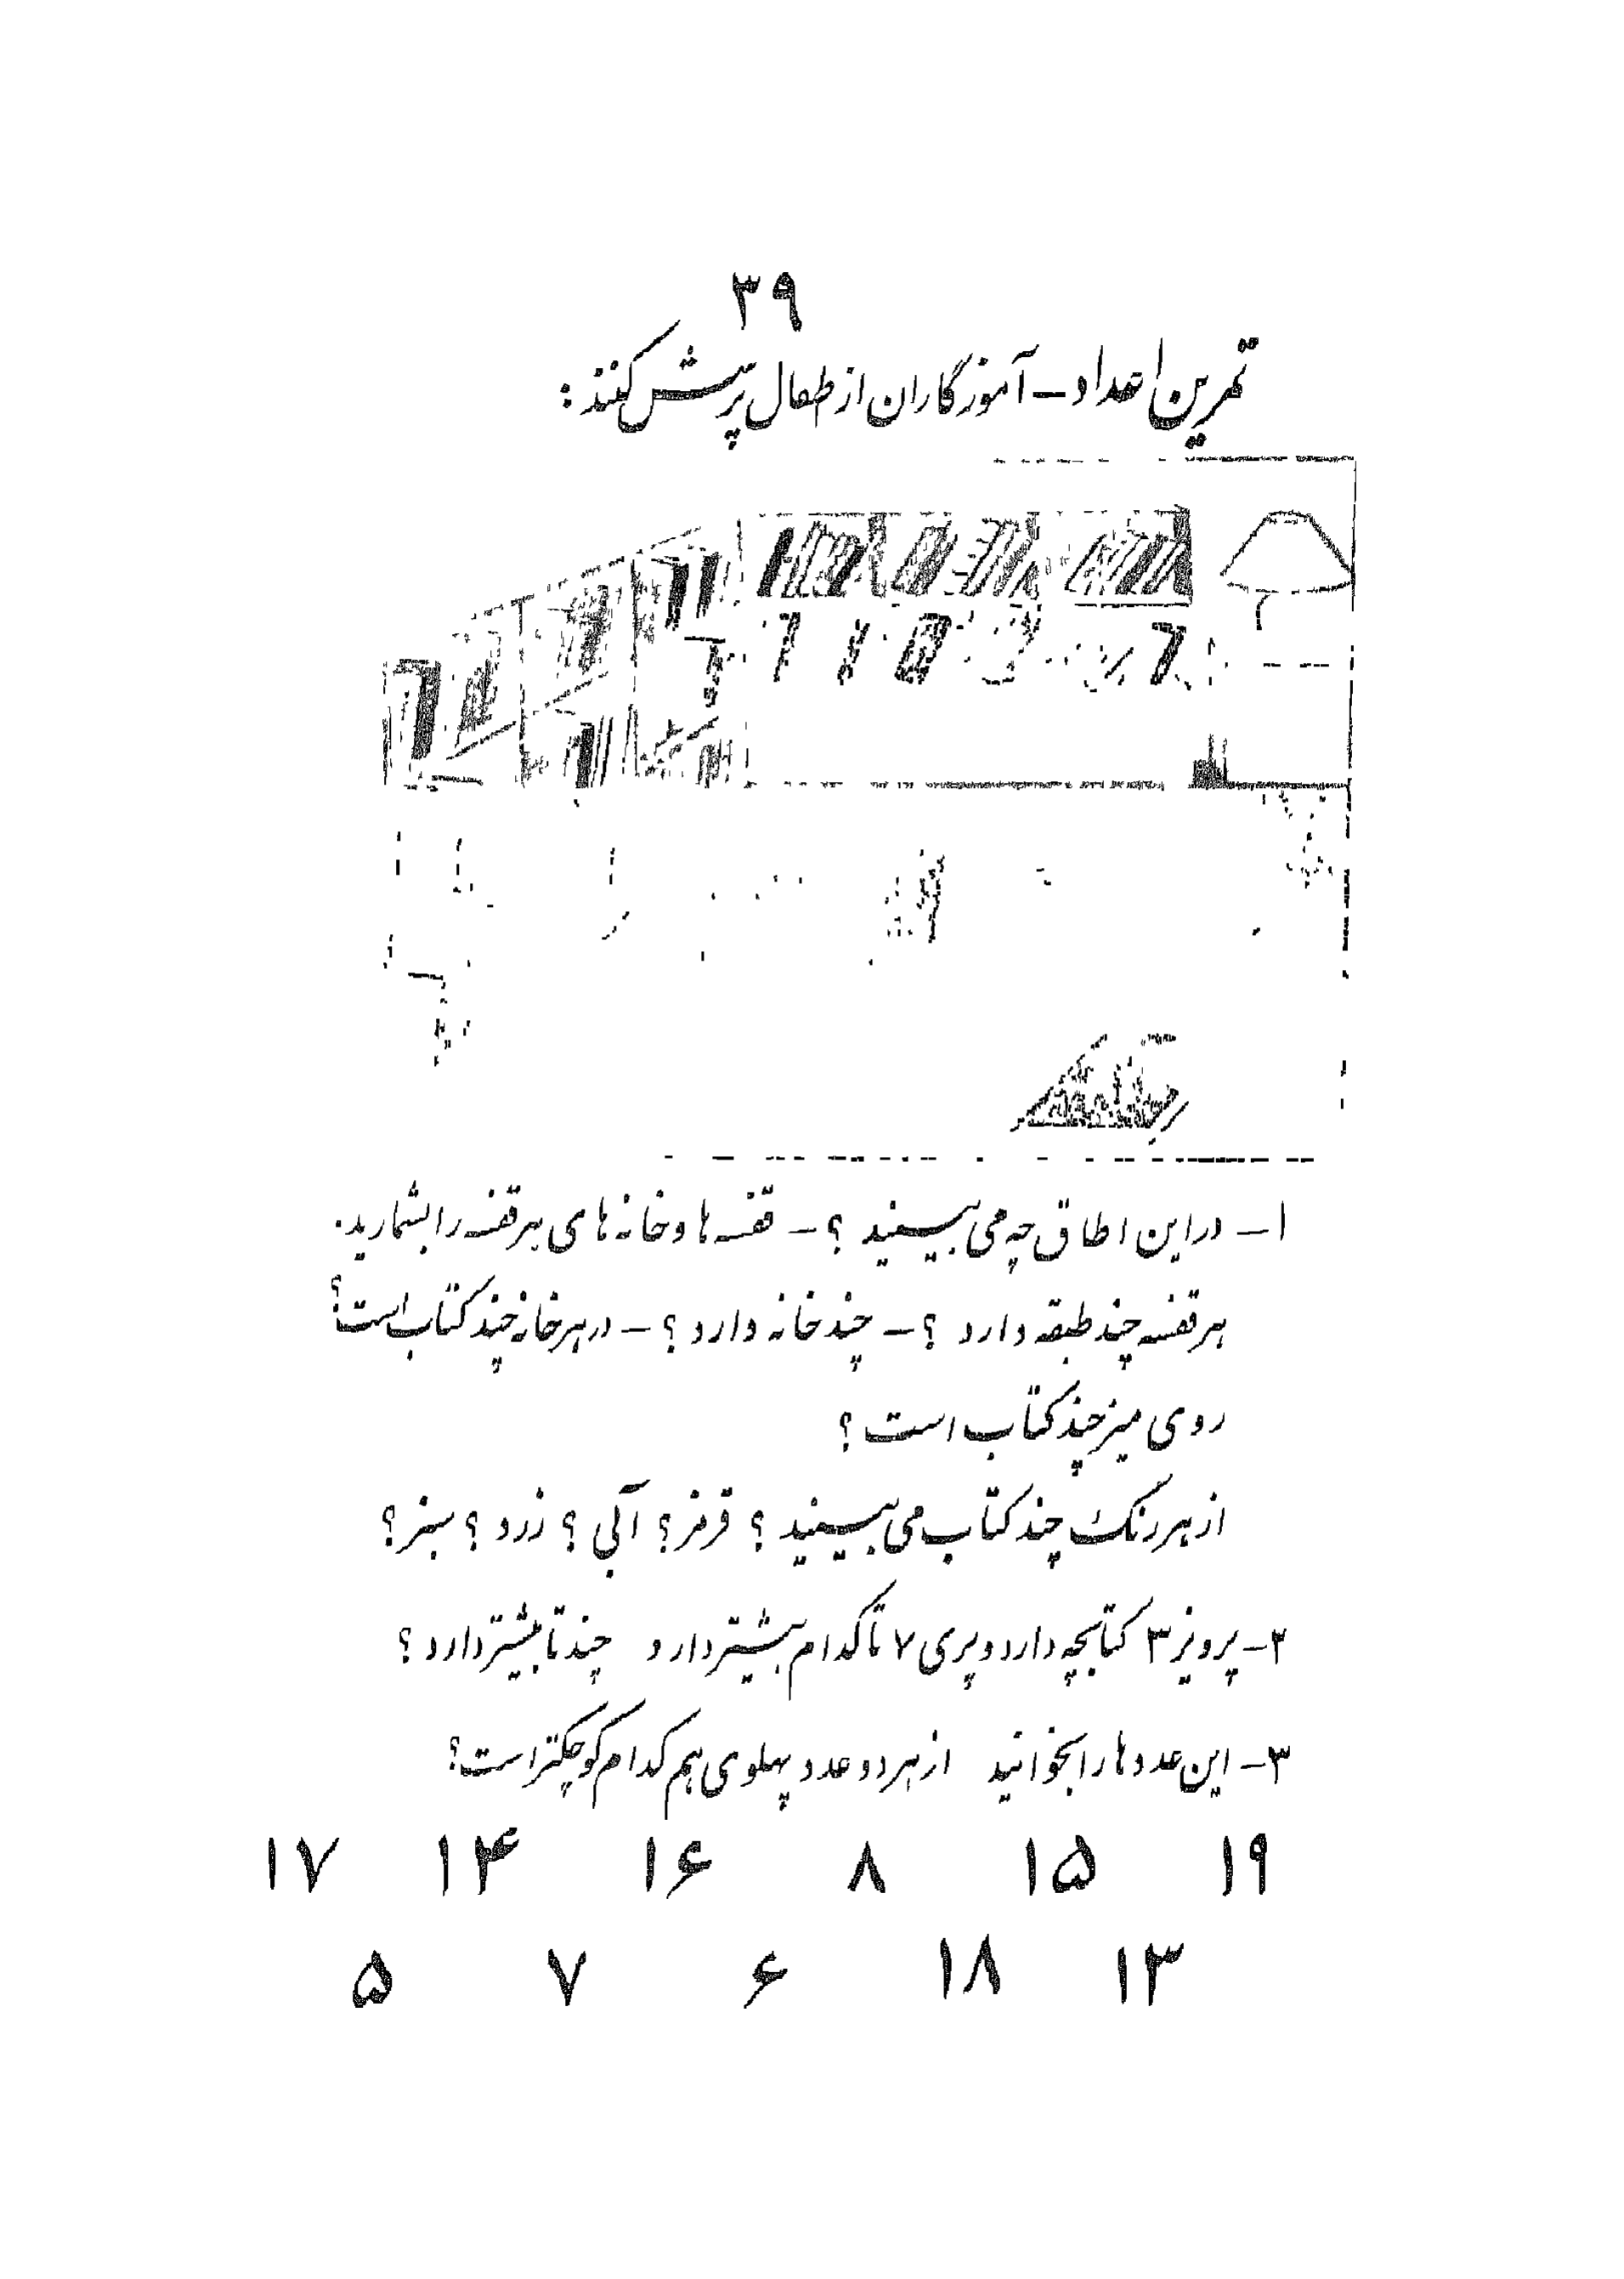 ۳۹
تمرین اعداد – آموزگاران از طفال پرسش کنند :
۱– در این اطاق چه می بینید ؟ – قفسه ها و خانه های هر قفسه را بشمارید.
هر قفسه چند طبقه دارد ؟ – چند خانه دارد ؟ – در هر خانه چند کتاب است؟
روی میز چند کتاب است ؟
از هر رنگ چند کتاب می بینید ؟ قرمز ؟ آبی ؟ زرد ؟ سبز ؟
۲– پرویز ۳ کتابچه دارد و پری ۷ تا کدام بیشتر دارد چند تا بیشتر دارد ؟
۳– این عددها را بخوانید از هر دو عدد پهلوی هم کدام کوچکتر است؟
۱۹ ۱۵ ۸ ۱۶ ۱۴ ۱۷
۱۳ ۱۸ ۶ ۷ ۵